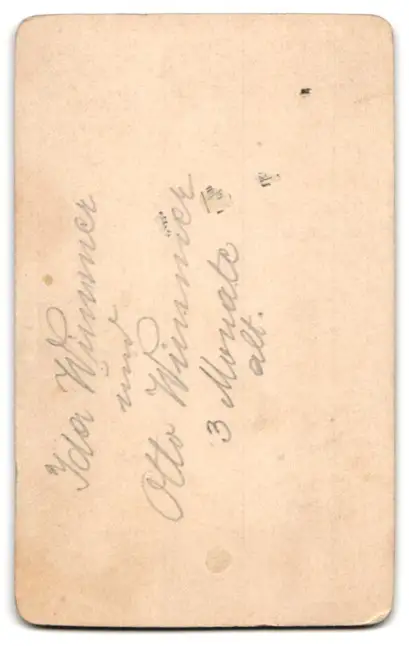 Ida Wimmer
und
Otto Wimmer
3 Monate
alt.